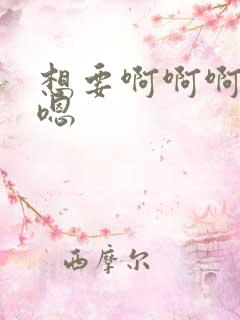 想要啊啊啊
嗯
西摩尔